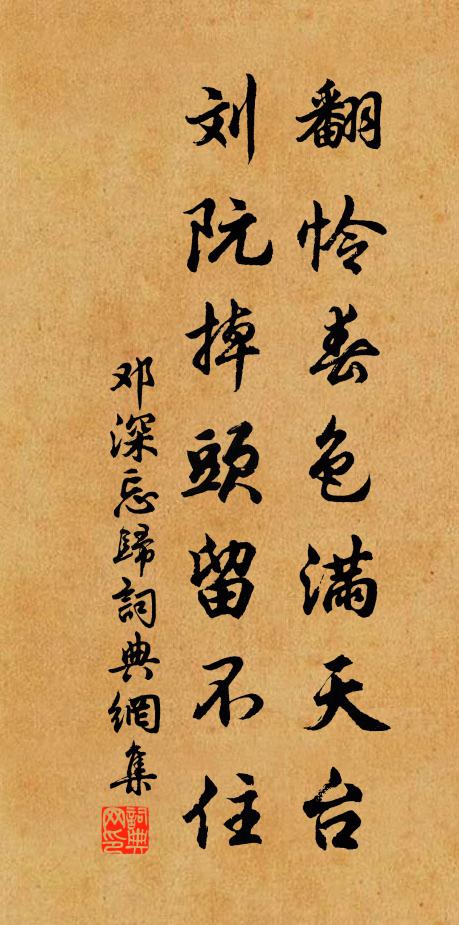 翻怜春色满天台
刘阮掉頭留不住
邓深忘歸詞典網集
詞典网印